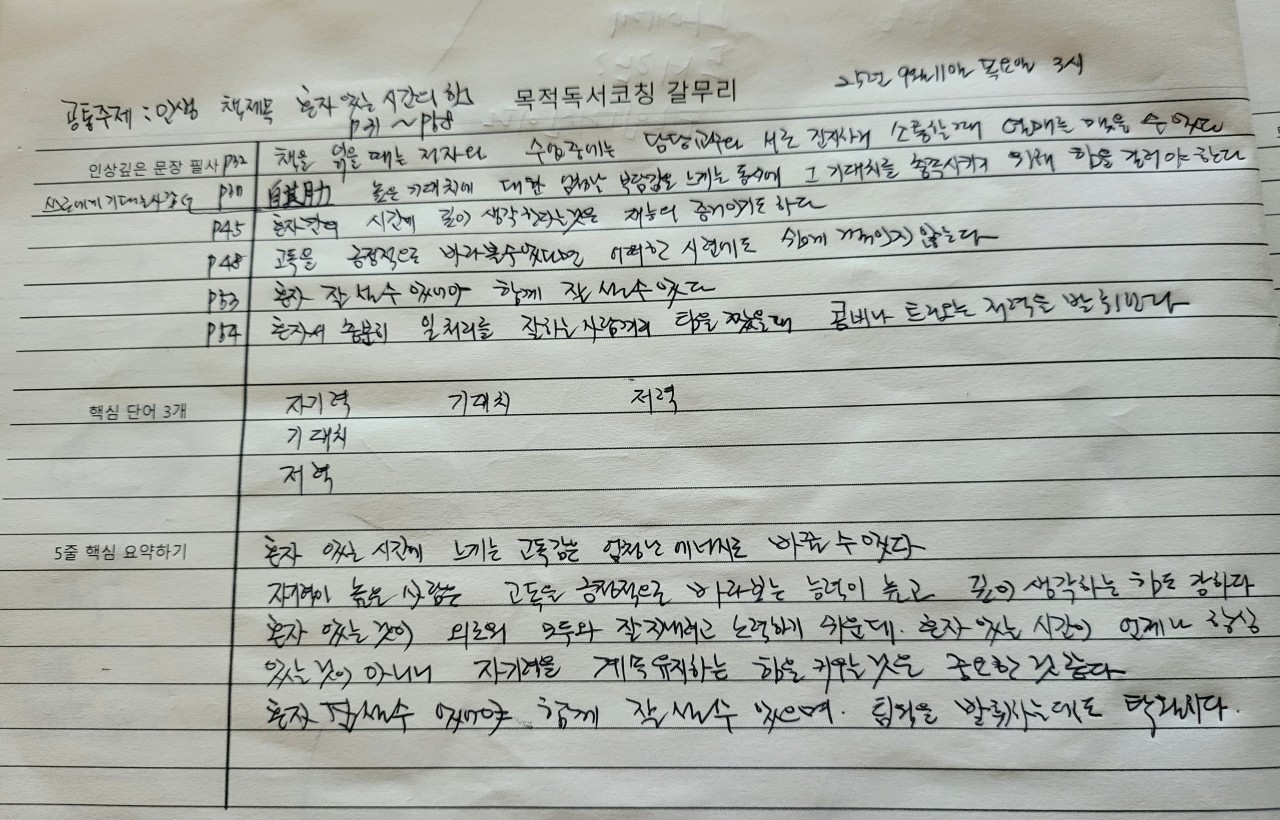 공통주제 : 인생 책제목 혼자 있는 시간의 힘 목적독서코칭 갈무리 25년 9월11일 목요일 3시
p31 ~ p58
인상깊은 문장 필사 p32 책을 읽을 때는 저자와 수업중에는 담당교수와 서로 진지하게 소통할때 열매를 맺을 수 있다
스스로에게 기대하는 p37 自其月力 높은 기대치에 대한 엄청난 부담감을 느끼는 동시에 그 기대치를 충족시키기 위해 힘을 길러야 한다
p45 혼자만의 시간에 깊이 생각한다는것은 재능의 증거이기도 하다
p48 고독을 긍정적으로 바라볼수있다면 어떠한 시련에도 쉽게 꺾이지 않는다
p53 혼자 잘 설수 있어야 함께 잘 설수있다
p54 혼자서 충분히 일처리를 잘하는 사람끼리 팀을 짰을때 콤비나 트리오는 저력을 발휘한다
핵심 단어 3개 자기력 기대치 저력
기대치
저력
5줄 핵심 요약하기 혼자 있는 시간에 느끼는 고독감은 엄청난 에너지로 바꿀 수 있다
자기력이 높은 사람은 고독을 긍정적으로 바라보는 능력이 높고 깊이 생각하는 힘도 강하다
혼자 있는 것이 외로워 모두와 잘지내려고 노력하기 쉬운데. 혼자 있는 시간이 언제나 항상
있는 것이 아니니 자기력을 계속유지하는 힘을 키우는 것은 중요한 것 같다
혼자 잘설수 있어야 함께 잘 설수 있으며. 팀워을 발휘하는데도 탁월하다.